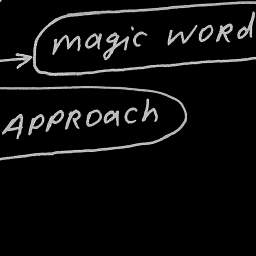 magic WORD
APPROach